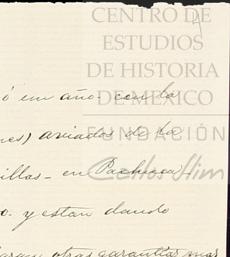 CENTRO DE
ESTUDIOS
DE HISTORIA
DE MEXICO
FUNDACIÓN
Carlos Slim
ó un año. con la
nes) aviados de la
illas_ en Pachuca_
o. y estan dando
otras garantias mas